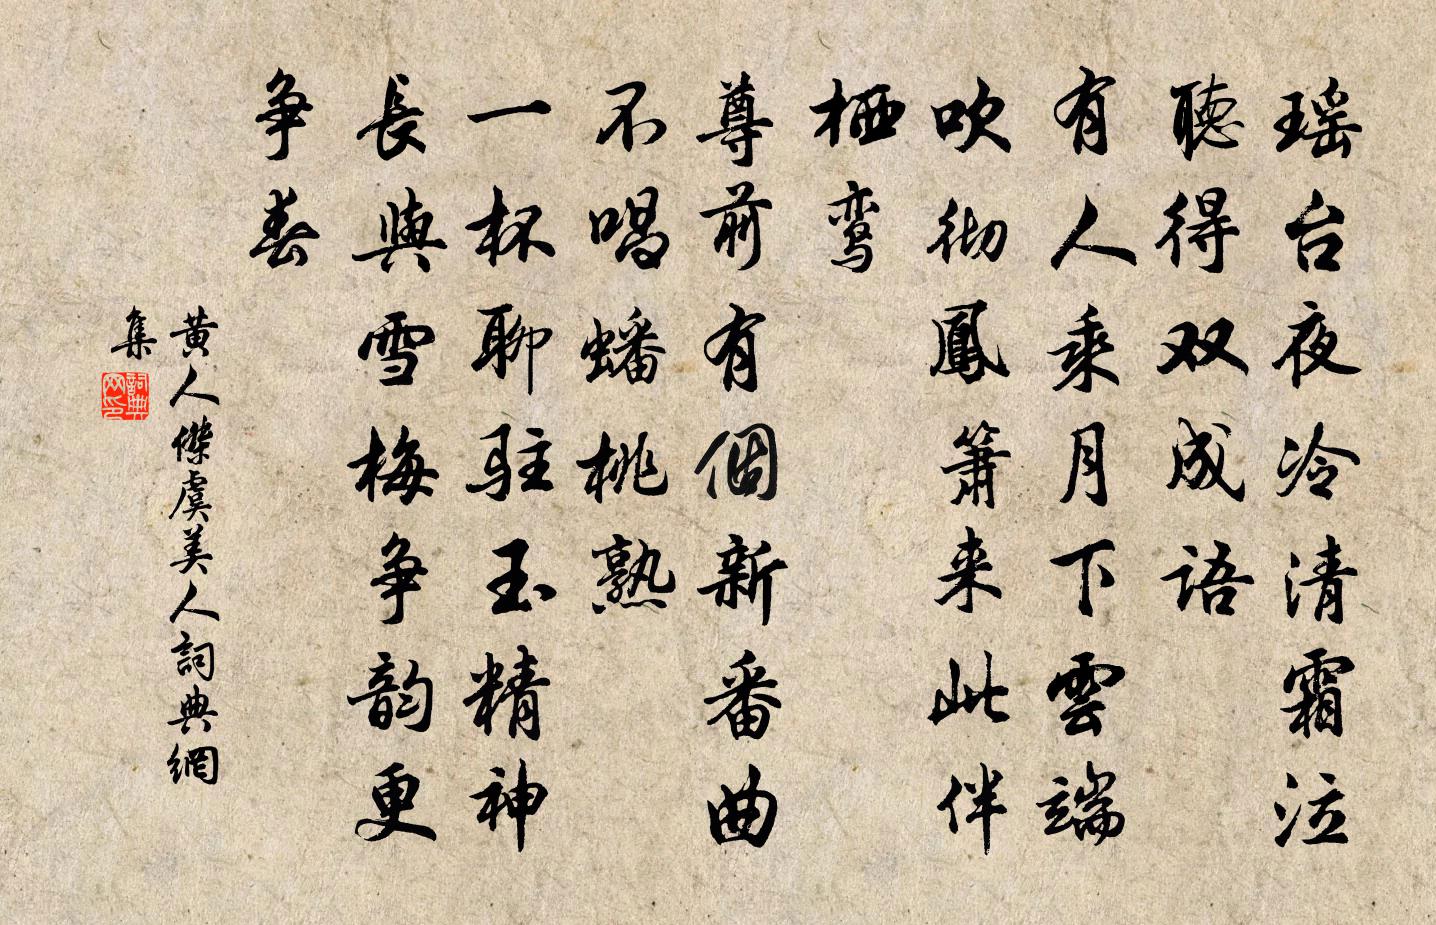 瑶台夜冷清霜泣
聴得双成语
有人乘月下雲端
吹彻鳳箫来此伴
栖鸾
尊前有個新番曲
不唱蟠桃熟
一杯聊駐玉精神
長與雪梅争韵更
争春
黄人傑虞美人詞典網
集
詞典
网印